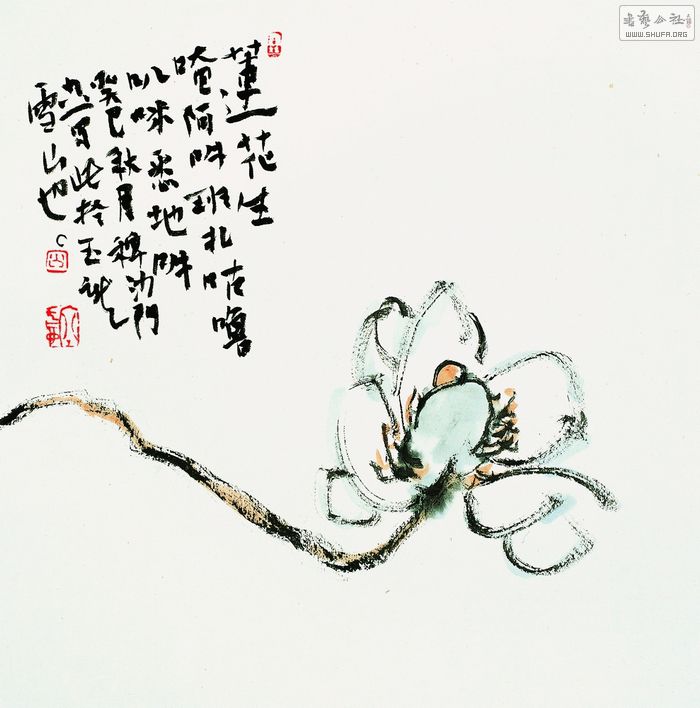 蓮花生
唵阿吽班扎咕嚕
叭咪悉地吽
癸巳秋月禅沙門
写此於玉龍
雪山也
書藝公社
WWW.SHUFA.ORG